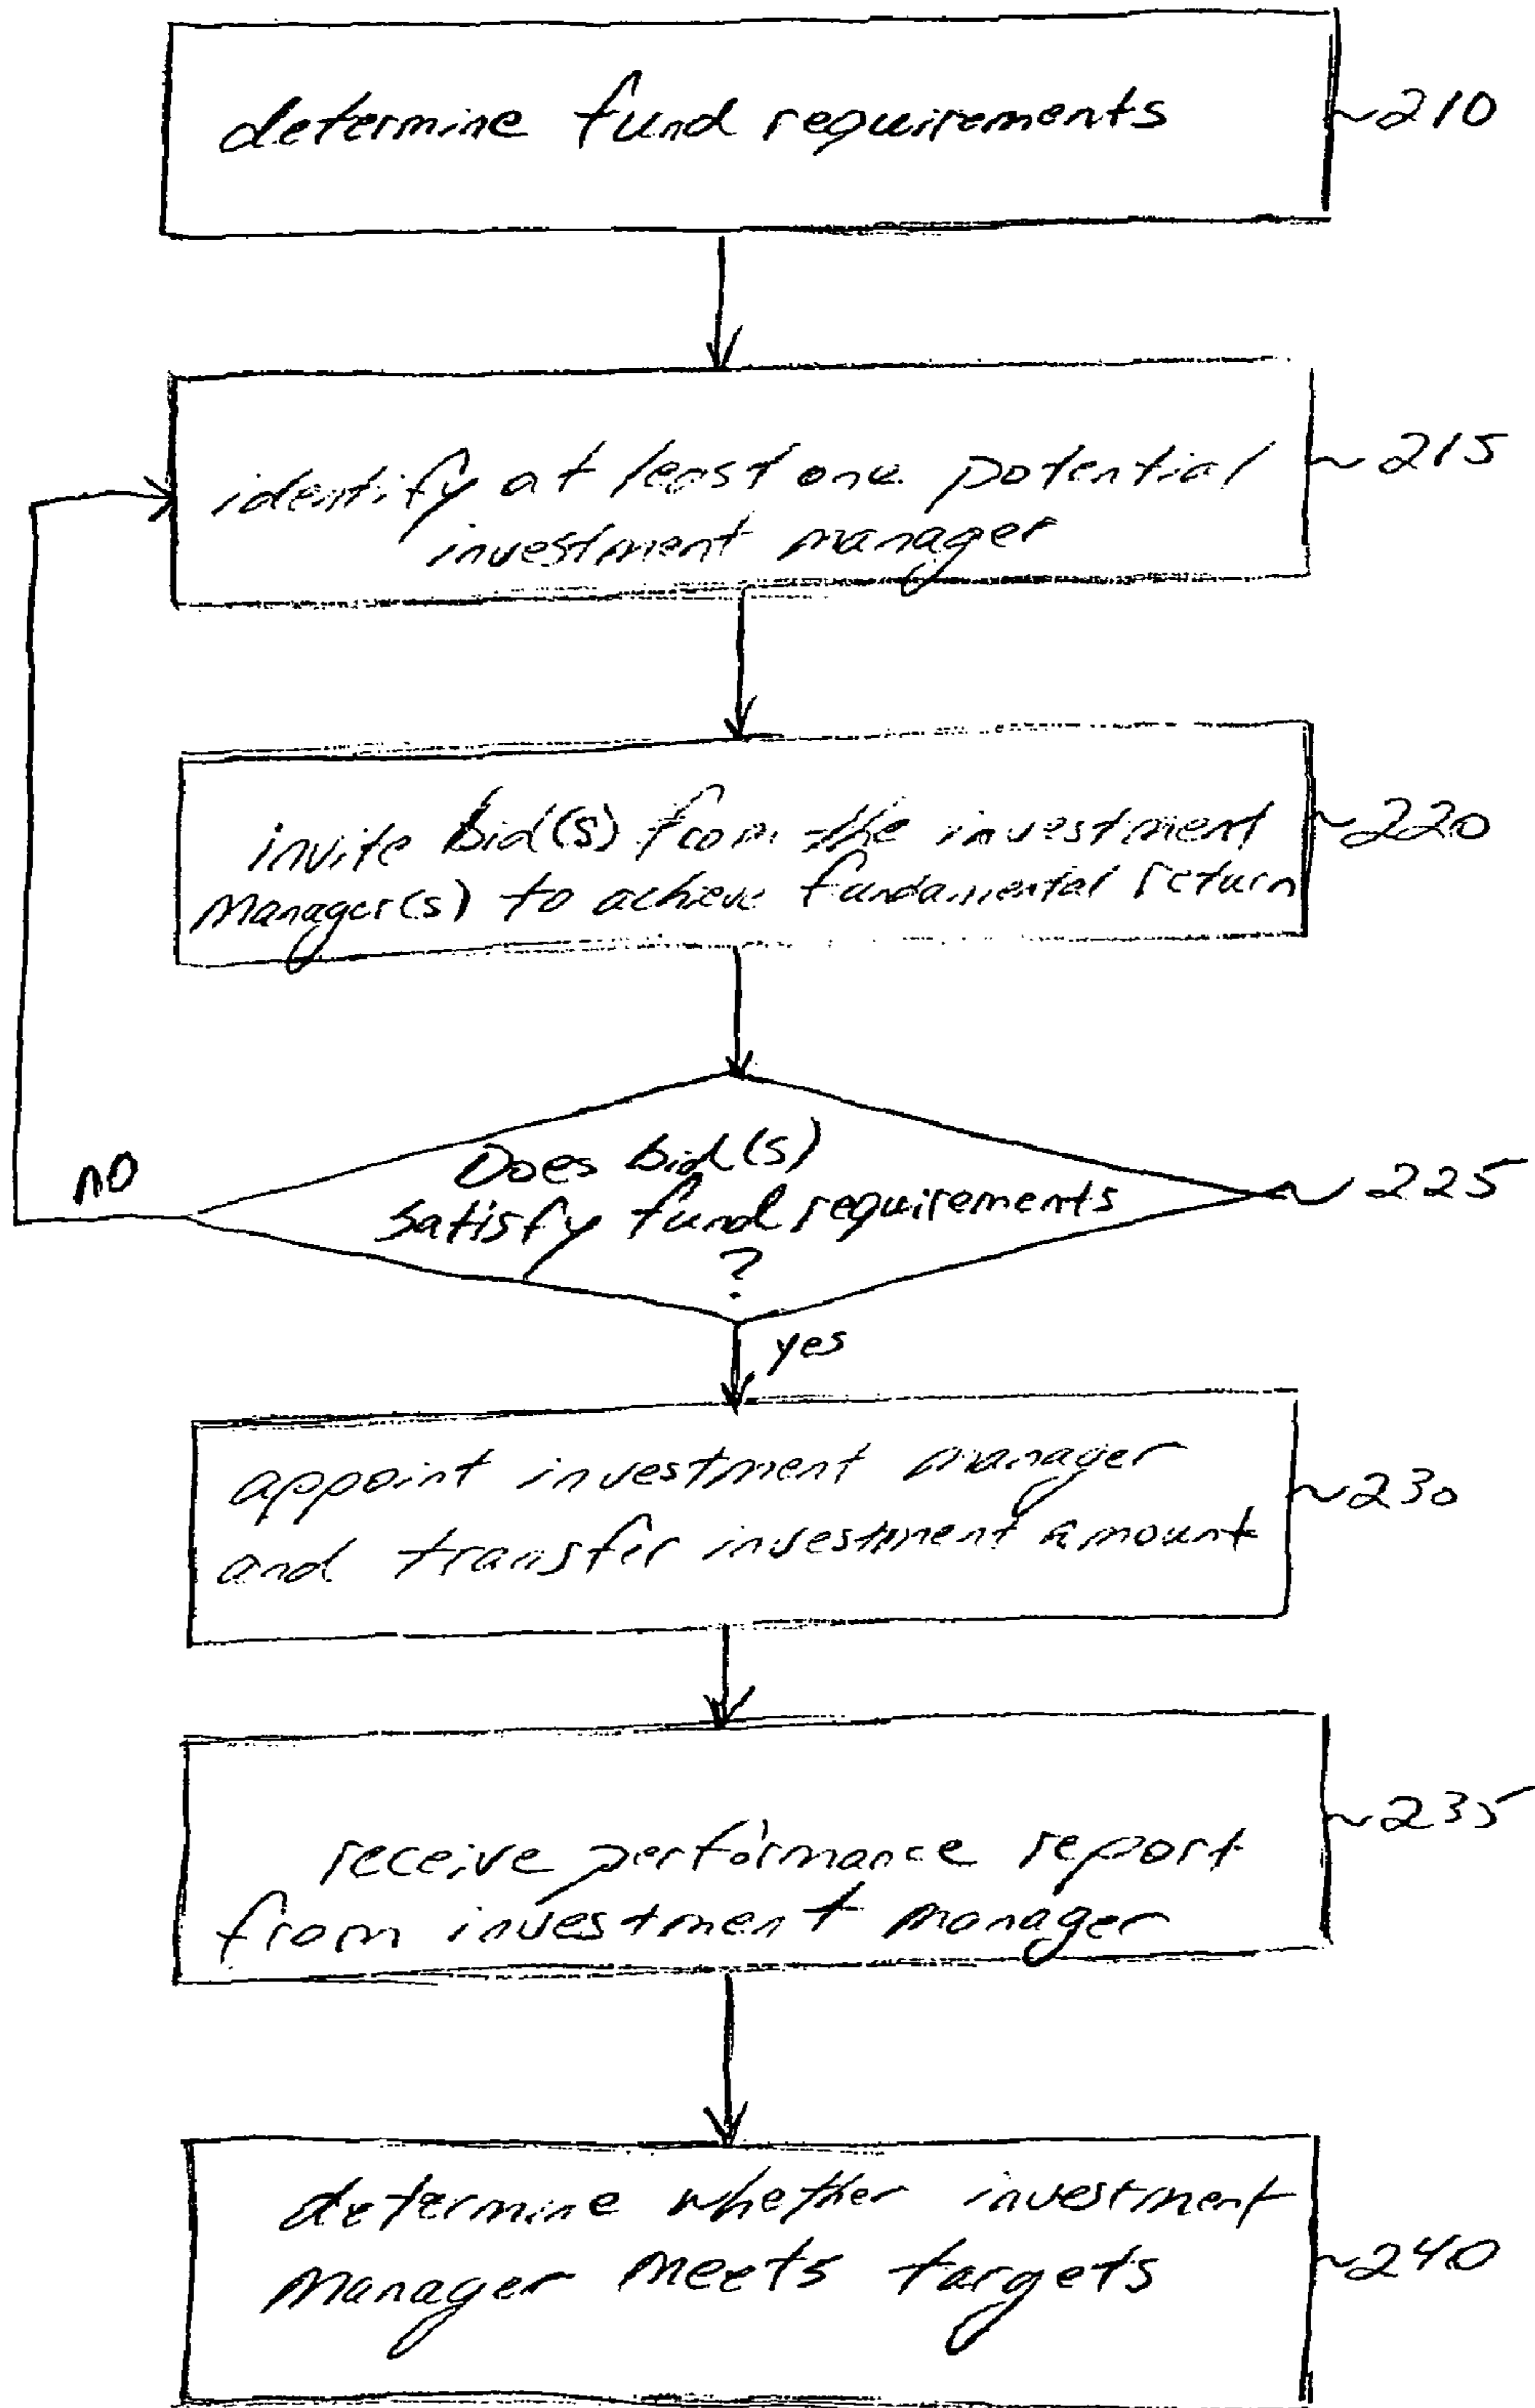 determine fund requirements
~210
identify at least one potential
investment manager
~215
invite bid(s) from the investment
manager(s) to achieve fundamental return
~220
Does bid(s)
satisfy fund requirements
?
~225
no
yes
appoint investment manager
and transfer investment amount
~230
receive performance report
from investment manager
~235
determine whether investment
manager meets targets
~240